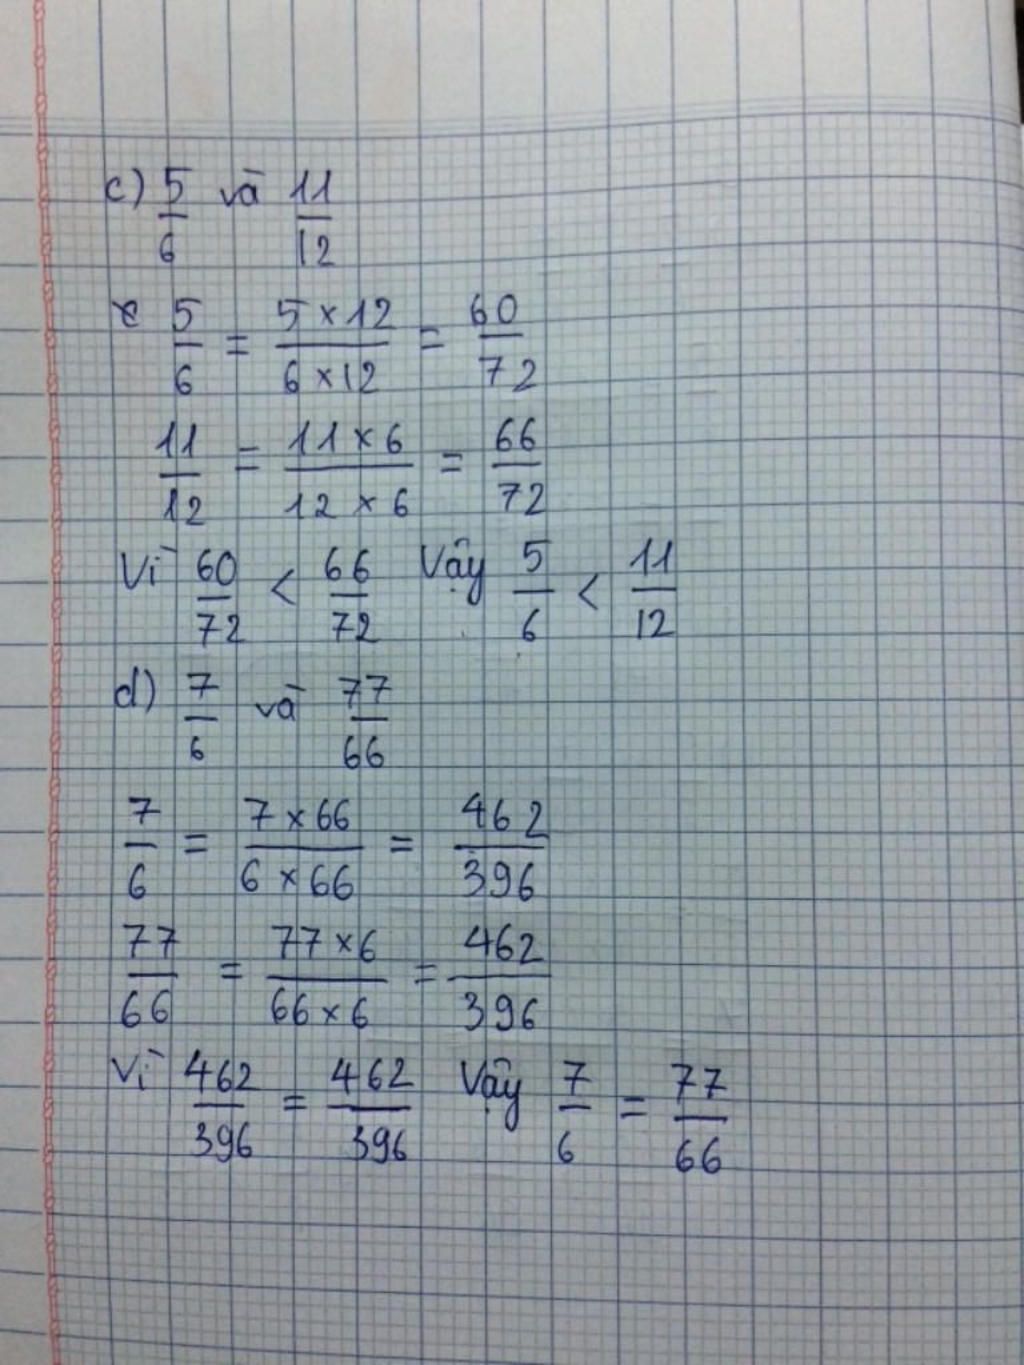 c) 5/6 và 11/12
5/6 = 5 × 12 / 6 × 12 = 60/72
11/12 = 11 × 6 / 12 × 6 = 66/72
Vì 60/72 < 66/72 Vậy 5/6 < 11/12
d) 7/6 và 77/66
7/6 = 7 × 66 / 6 × 66 = 462/396
77/66 = 77 × 6 / 66 × 6 = 462/396
Vì 462/396 = 462/396 Vậy 7/6 = 77/66